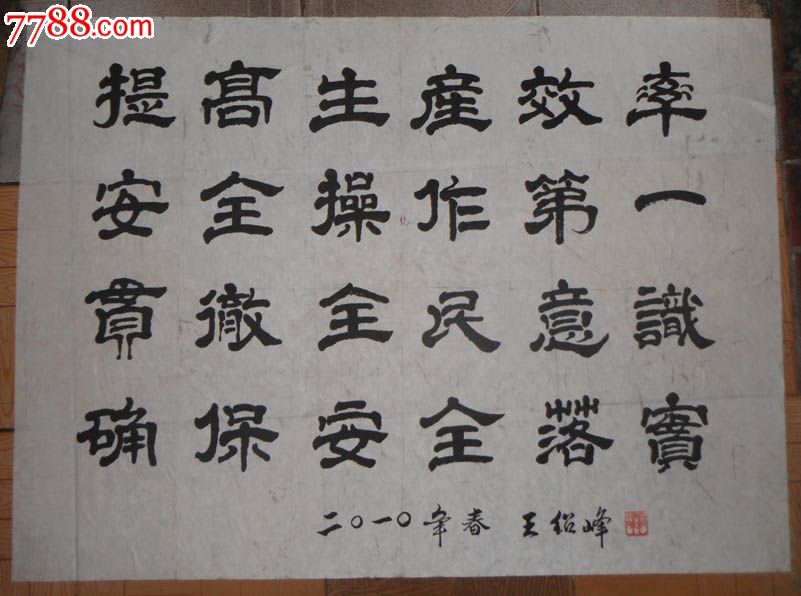 7788.com
提高生産效率
安全操作第一
貫徹全民意識
确保安全落實
二〇一〇年春 王紹峰